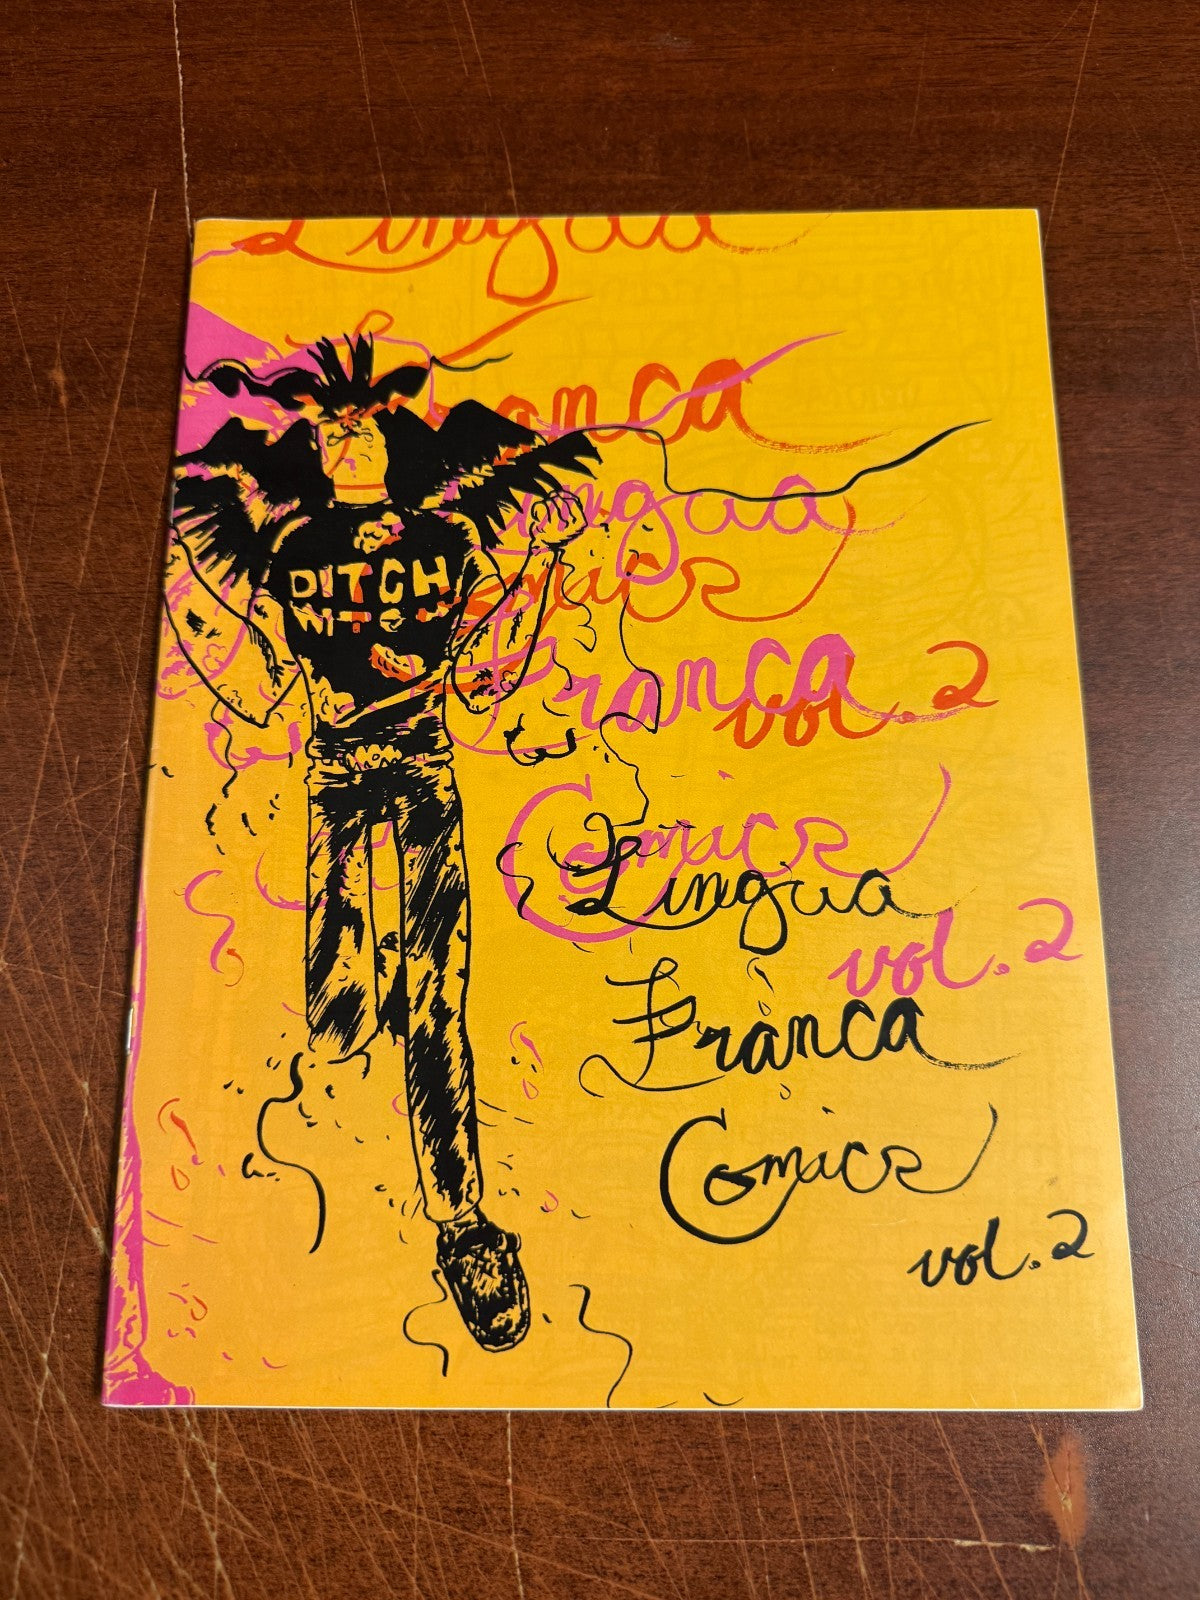 Lingua
Franca
Lingua
Comics
Franca
vol. 2
Comics
vol. 2
Lingua
Franca
Comics
vol. 2
DITCH
WITCH